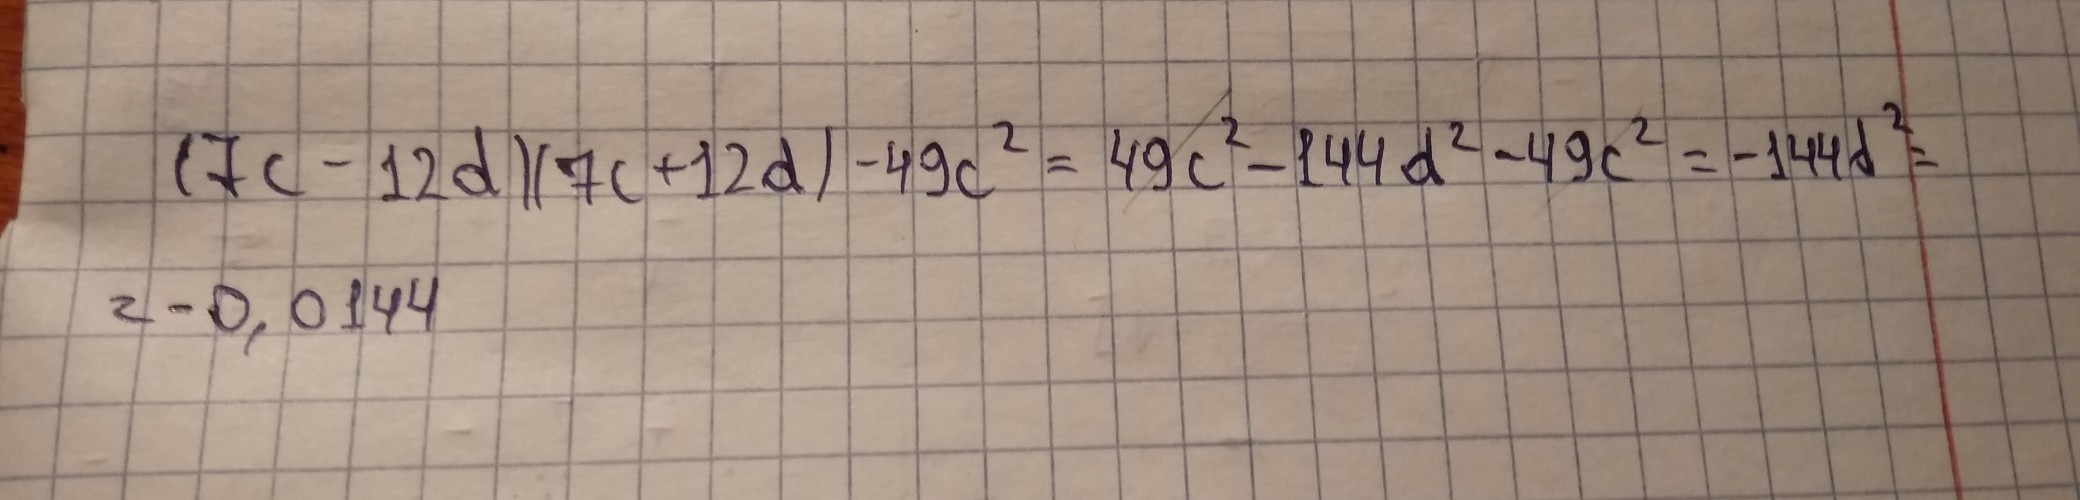 (7c - 12d)(7c + 12d) - 49c² = 49c² - 144d² - 49c² = -144d² =
= -0,0144